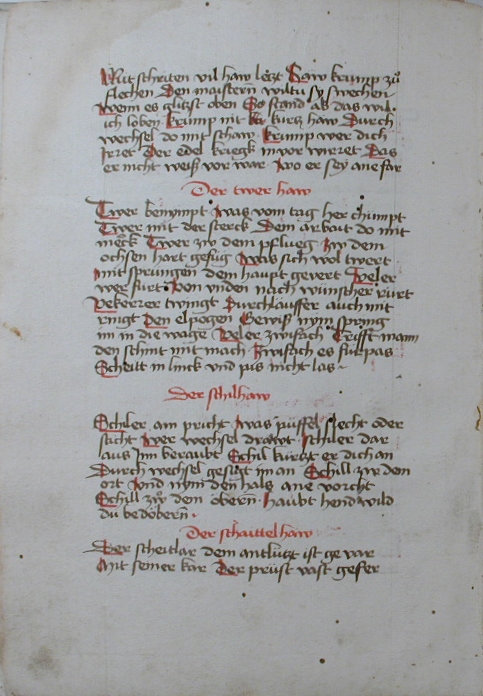 Mit schriten vil haw letzt Haw krump zů
flechen Den maistern wiltu sy swechen
Wenn es glitzst oben So stand ab das wil
ich loben Krump nit kurtz haw Durch
wechsel do mit schaw Krump wer dich
Irret Der edel kriegk inn vor wirret Das
er nicht weiß vor war wo er sey ane far
Der twer haw
Twer benympt was vom tag her chumpt
Twer mit der sterck Dein arbait do mit
merck Twer zw dem pflueg Zw dem
ochsen hart gefug Was sich wol twert
mit sprungen dem haupt gevert Veler
wer furt Von vnden nach wunscher rürt
Vekerer twingt Durchlauffer auch mit
ringt Den elpogen Gewiß nym spring
im in die wage Veler zwifach Trifft mann
den schnit mit mach Zwifach es fürpas
Schrit in linck vnd pis nicht las
Der schilhaw
Schiler ein pricht was püffel slecht oder
sticht Wer wechsel drawt Schiler dar
aus Inn beraubt Schil kürtzt er dich an
Durch wechsel gesigt im an Schill zw dem
ort Vnd nym den hals ane vorcht
Schill zw dem öbern haubt hend wild
du bedöbern
Der schaittelhaw
Der scheitlar dem antlutzt ist ge var
Mit seiner kar Der prüst vast gefer